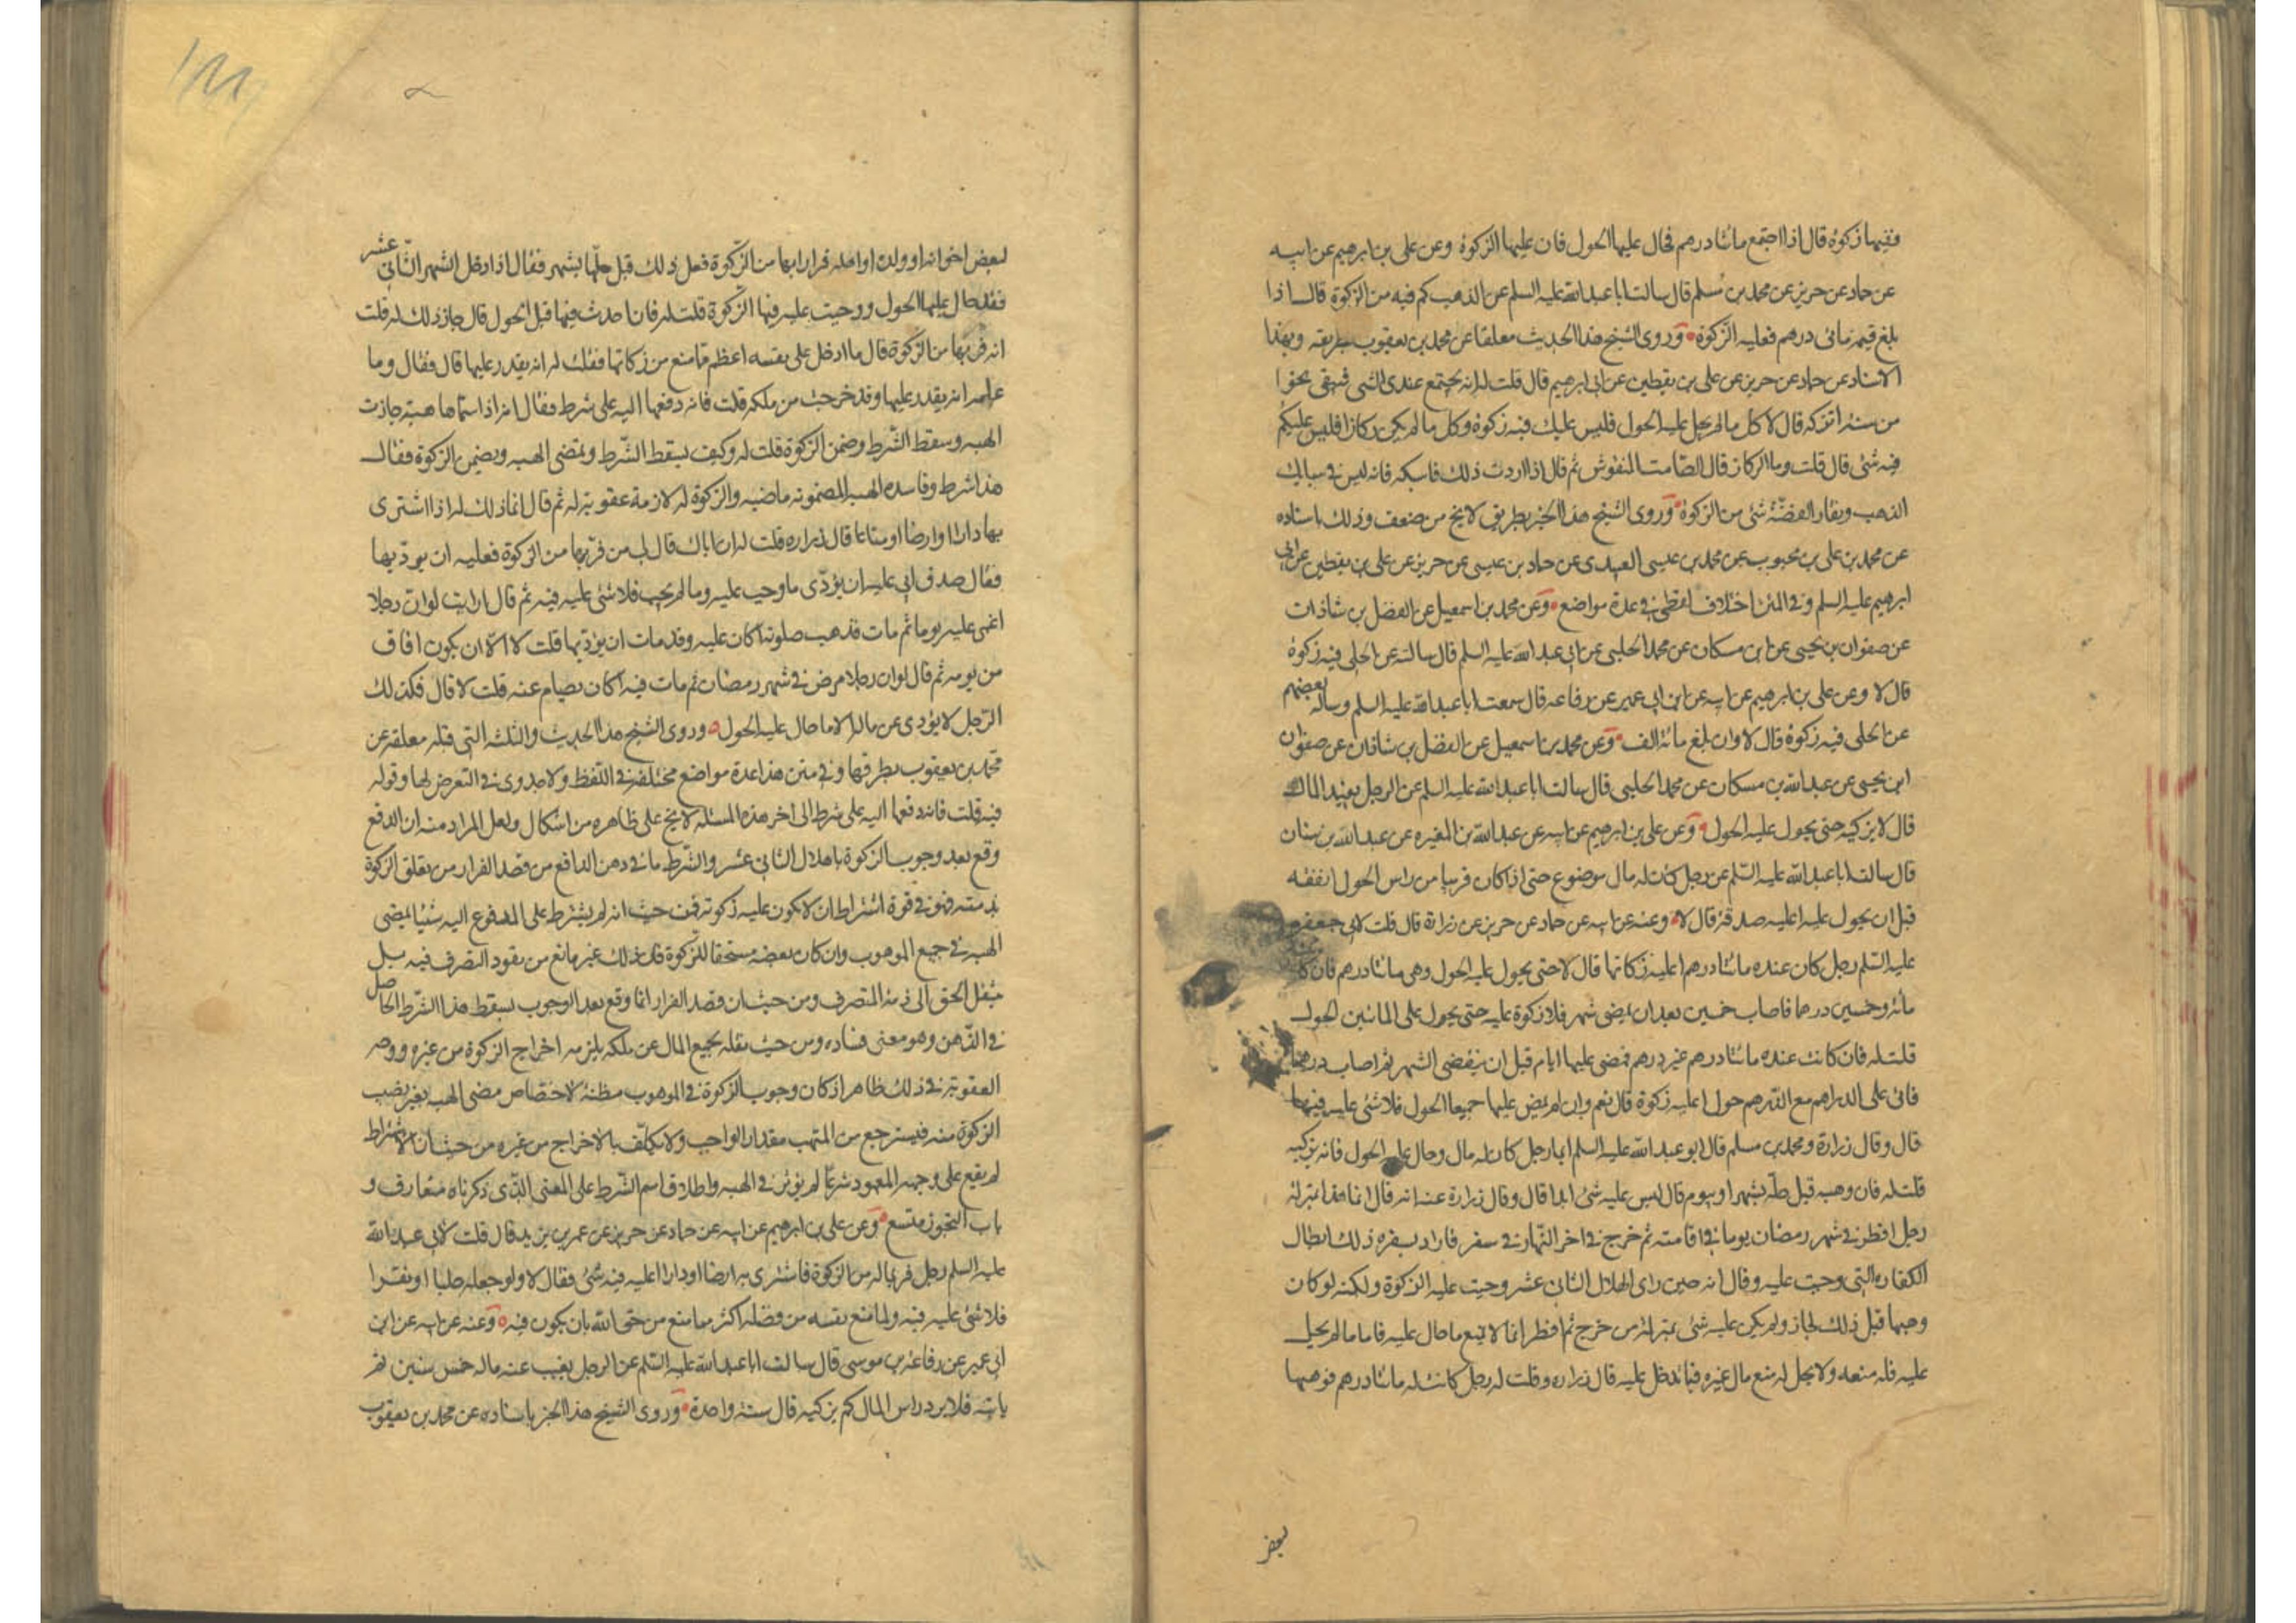 ففيها زكوة قال اذا اجتمع مائتا درهم فحال عليها الحول فان عليها الزكوة وعن على بن ابرهيم عن ابيه
عن حماد عن حريز عن محمد بن مسلم قال سالت ابا عبد الله عليه السلم عن الذهب كم فيه من الزكوة قال اذا
بلغ قيمته مائى درهم فعليه الزكوة وروى الشيخ هذا الحديث معلقا عن محمد بن يعقوب بطريقه وبهذا
الاسناد عن حماد عن حريز عن على بن يقطين عن ابى ابرهيم قال قلت له انه يجتمع عندى الشئ فيبقى نحوا
من سنة انزكه قال لا كل ما لم يحل عليه الحول فليس عليك فيه زكوة وكل ما لم يكن ركازا فليس عليكم
فيه شئ قال قلت وما الركاز قال الصامت المنقوش ثم قال اذا اردت ذلك فاسبكه فانه ليس فى سبايك
الذهب ونقار الفضة شئ من الزكوة وروى الشيخ هذا الخبر بطريق لا يخ من ضعف وذلك باسناده
عن محمد بن على بن محبوب عن محمد بن عيسى العبيدى عن حماد بن عيسى عن حريز عن على بن يقطين عن ابى
ابرهيم عليه السلم وفى المتن اختلاف لفظى فى عدة مواضع وعن محمد بن اسمعيل عن الفضل بن شاذان
عن صفوان بن يحيى عن ابن مسكان عن محمد الحلبى عن ابى عبد الله عليه السلم قال سالته عن الحلى فيه زكوة
قال لا وعن على بن ابرهيم عن ابيه عن ابن ابى عمير عن رفاعه قال سمعت ابا عبد الله عليه السلم وساله بعضهم
عن الحلى فيه زكوة قال لا وان بلغ مائة الف وعن محمد بن اسمعيل عن الفضل بن شاذان عن صفوان
ابن يحيى عن عبد الله بن مسكان عن محمد الحلبى قال سالت ابا عبد الله عليه السلم عن الرجل يفيد المال
قال لا يزكيه حتى يحول عليه الحول وعن على بن ابرهيم عن ابيه عن عبد الله بن المغيره عن عبد الله بن سنان
قال سالت ابا عبد الله عليه السلم عن رجل كان له مال موضوع حتى اذا كان قريبا من راس الحول انفقه
قبل ان يحول عليه اعليه صدقة قال لا وعنه عن ابيه عن حماد عن حريز عن زرارة قال قلت لابى جعفر
عليه السلم رجل كان عنده مائتا درهم اعليه زكاتها قال لا حتى يحول عليه الحول وهى مائتا درهم فان كا
مائة وخمسين درهما فاصاب خمسين بعد ان يمضى شهر فلا زكوة عليه حتى يحول على المائتين الحول
قلت له فان كانت عنده مائتا درهم غير درهم فمضى عليها ايام قبل ان ينقضى الشهر ثم اصاب درهما
فاتى على الدراهم مع الدرهم حول اعليه زكوة قال نعم وان لم يمض عليها جميعا الحول فلا شئ عليه فيها
قال وقال زرارة ومحمد بن مسلم قال ابو عبد الله عليه السلم ايما رجل كان له مال وحال عليه الحول فانه يزكيه
قلت له فان وهبه قبل حله بشهر او بيوم قال ليس عليه شئ ابدا قال وقال زرارة عنه انه قال انما هذا بمنزلة
رجل افطر فى شهر رمضان يوما فى اقامته ثم خرج فى اخر النهار فى سفر فاراد بسفره ذلك ابطال
الكفاره التى وجبت عليه وقال انه حين راى الهلال الثانى عشر وجبت عليه الزكوة ولكنه لو كان
وهبها قبل ذلك لجاز ولم يكن عليه شئ بمنزلة من خرج ثم افطر انما لا يمنع ما حال عليه فاما ما لم يحل
عليه فله منعه ولا يحل له منع مال غيره فيما قد حل عليه قال زراره وقلت له رجل كانت له مائتا درهم فوهبها
لبعض
لبعض اخوانه او ولده او اهله فرارا بها من الزكوة فعل ذلك قبل حلها بشهر فقال اذا دخل الشهر الثانى عشر
فقد حال عليها الحول ووجبت عليه فيها الزكوة قلت له فان احدث فيها قبل الحول قال جاز ذلك له قلت
انه فر بها من الزكوة قال ما ادخل على نفسه اعظم مما منع من زكاتها فقلت له انه يقدر عليها قال فقال وما
علمه انه يقدر عليها وقد خرجت من ملكه قلت فانه دفعها اليه على شرط فقال انه اذا سماها هبة جازت
الهبه وسقط الشرط وضمن الزكوة قلت له وكيف يسقط الشرط وتمضى الهبه ويضمن الزكوة فقال
هذا شرط وفاسده الهبه المضمونه ماضيه والزكوة له لازمة عقوبة له ثم قال انما ذلك له اذا اشترى
بها دارا او ارضا او متاعا قال زراره قلت له ان اباك قال لى من فر بها من الزكوة فعليه ان يوديها
فقال صدق ابى عليه ان يؤدى ما وجب عليه وما لم يجب فلا شئ عليه فيه ثم قال ارايت لو ان رجلا
اغمى عليه يوما ثم مات فذهب صلوته اكان عليه وقد مات ان يؤديها قلت لا الا ان يكون افاق
من يومه ثم قال لو ان رجلا مرض فى شهر رمضان ثم مات فيه اكان يصام عنه قلت لا قال فكذلك
الرجل لا يؤدى عن ماله الا ما حال عليه الحول وروى الشيخ هذا الحديث والثلثة التى قبله معلقه عن
محمد بن يعقوب بطرقها وفى متن هذا عدة مواضع مختلفة فى اللفظ ولا جدوى فى التعرض لها وقوله
فيه قلت فانه دفعها اليه على شرط الى اخر هذه المسئلة لا يخ على ظاهره من اشكال ولعل المراد منه ان الدفع
وقع بعد وجوب الزكوة باهلال الثانى عشر والشرط ما فى ذهن الدافع من قصد الفرار من تعلق الزكوة
بذمته فهو فى قوة اشتراط ان لا يكون عليه زكوته فمن حيث انه لم يشترط على المدفوع اليه شيئا يمضى
الهبه فى جميع الموهوب وان كان بعضه مستحقا للزكوة فان ذلك غير مانع من نفوذ التصرف فيه بل
ينقل الحق الى ذمة المتصرف ومن حيث ان قصد الفرار انما وقع بعد الوجوب يسقط هذا الشرط الحاصل
فى الذهن وهو معنى فساده ومن حيث نقله لجميع المال عن ملكه يلزمه اخراج الزكوة من غيره ووجه
العقوبة فى ذلك ظاهر اذ كان وجوب الزكوة فى الموهوب مظنة لاختصاص مضى الهبه بغير نصيب
الزكوة منه فيسترجع من المتهب مقدار الواجب ولا يكلف بالاخراج من غيره من حيث ان الاشتراط
لم يقع على وجهه المعهود شرعا لم يؤثر فى الهبه واطلاق اسم الشرط على المعنى الذى ذكرناه متعارف و
باب التجوز متسع وعن على بن ابرهيم عن ابيه عن حماد عن حريز عن عمر بن يزيد قال قلت لابى عبد الله
عليه السلم رجل فر بماله من الزكوة فاشترى به ارضا او دارا اعليه فيه شئ فقال لا ولو جعله حليا او نقرا
فلا شئ عليه فيه وما منع نفسه من فضله اكثر مما منع من حق الله بان يكون فيه وعنه عن ابيه عن ابن
ابى عمير عن رفاعة بن موسى قال سالت ابا عبد الله عليه السلم عن الرجل يغيب عنه ماله خمس سنين ثم
ياتيه فلا يرد راس المال كم يزكيه قال سنة واحدة وروى الشيخ هذا الخبر باسناده عن محمد بن يعقوب